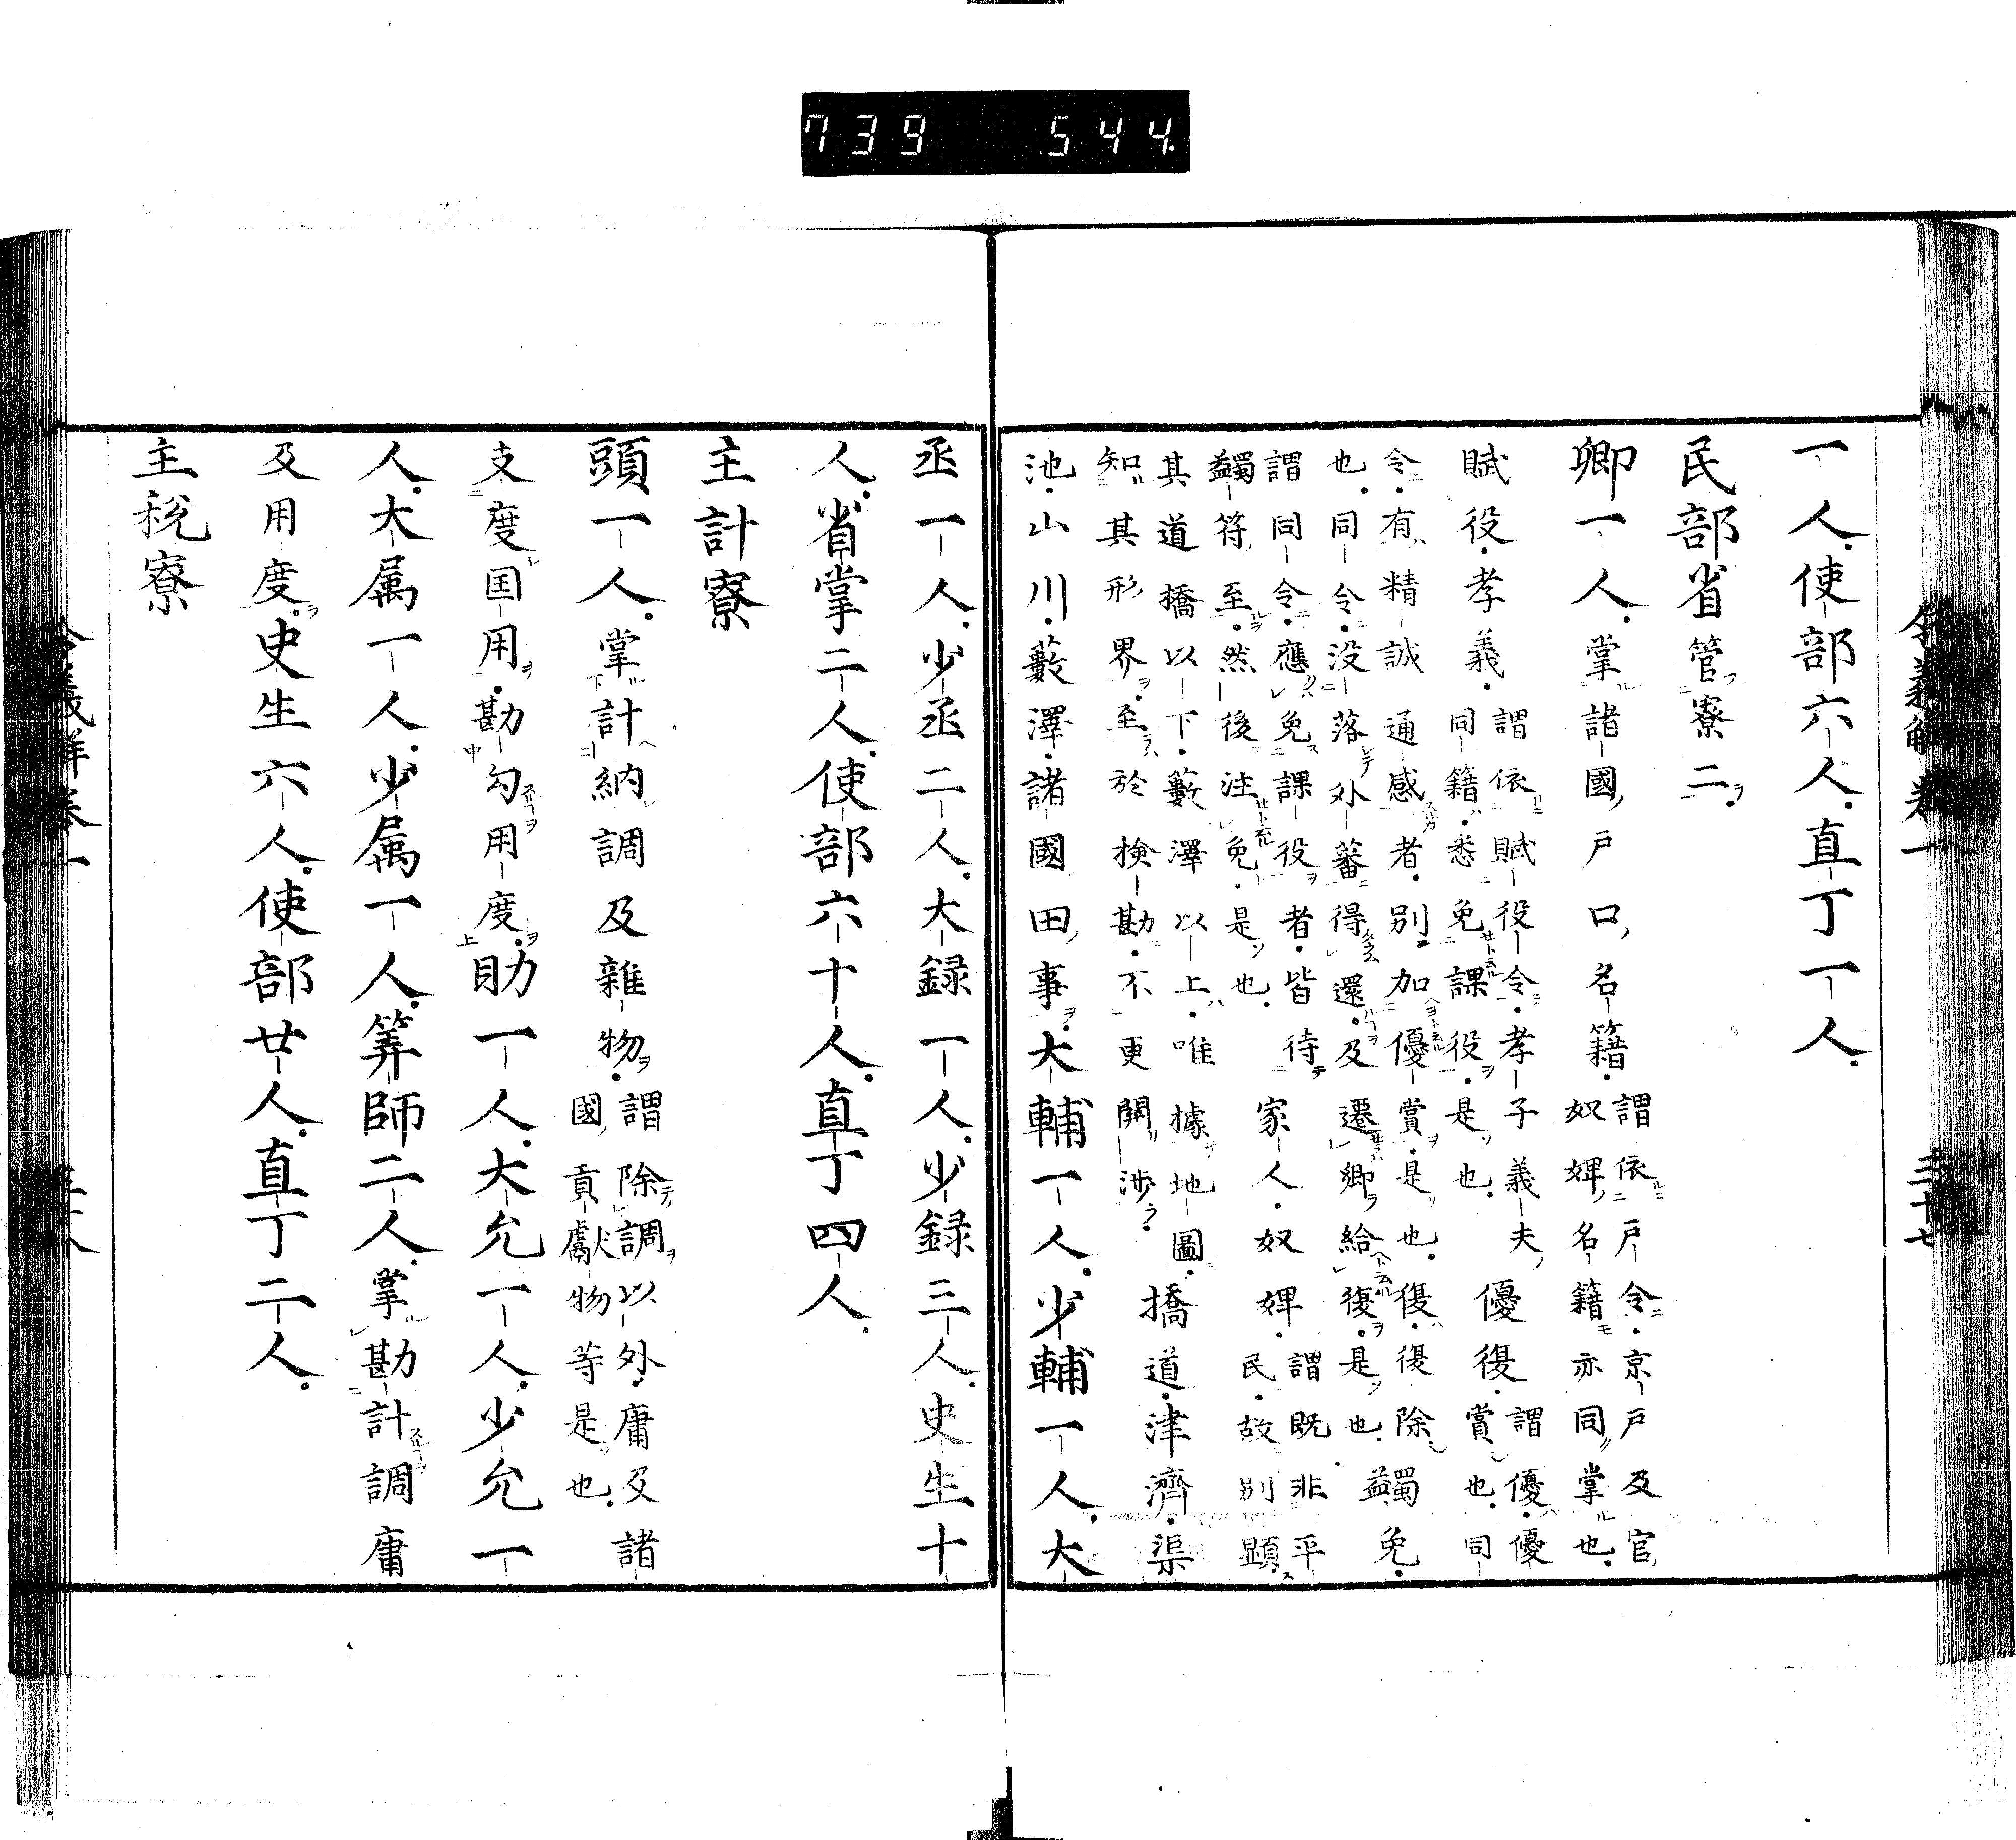 739 544
一人使部六人直丁一人
民部省管寮二
卿一人掌諸國戸口名籍謂依戸令京戸及官
奴婢名籍亦同掌也
賦役孝義謂依賦役令孝子義夫
同籍悉免課役是也優復謂優優
賞也同
令有精誠通感者別加優賞是也復復除
也同令没落外蕃得還及遷郷給復是也蠲免
謂同令應免課役者皆待
蠲符至然後注免是也家人奴婢謂既非平
民故別顕
其道橋以下藪澤以上唯據地圖
知其形界至於撿勘不更關渉橋道津濟渠
池山川藪澤諸國田事大輔一人少輔一人大
丞一人少丞二人大録一人少録三人史生十
人省掌二人使部六十人直丁四人
主計寮
頭一人掌計納調及雜物謂除調以外庸及諸
國貢獻物等是也
支度国用勘勾用度助一人大允一人少允一
人大属一人少属一人筭師二人掌勘計調庸
及用度史生六人使部廿人直丁二人
主税寮